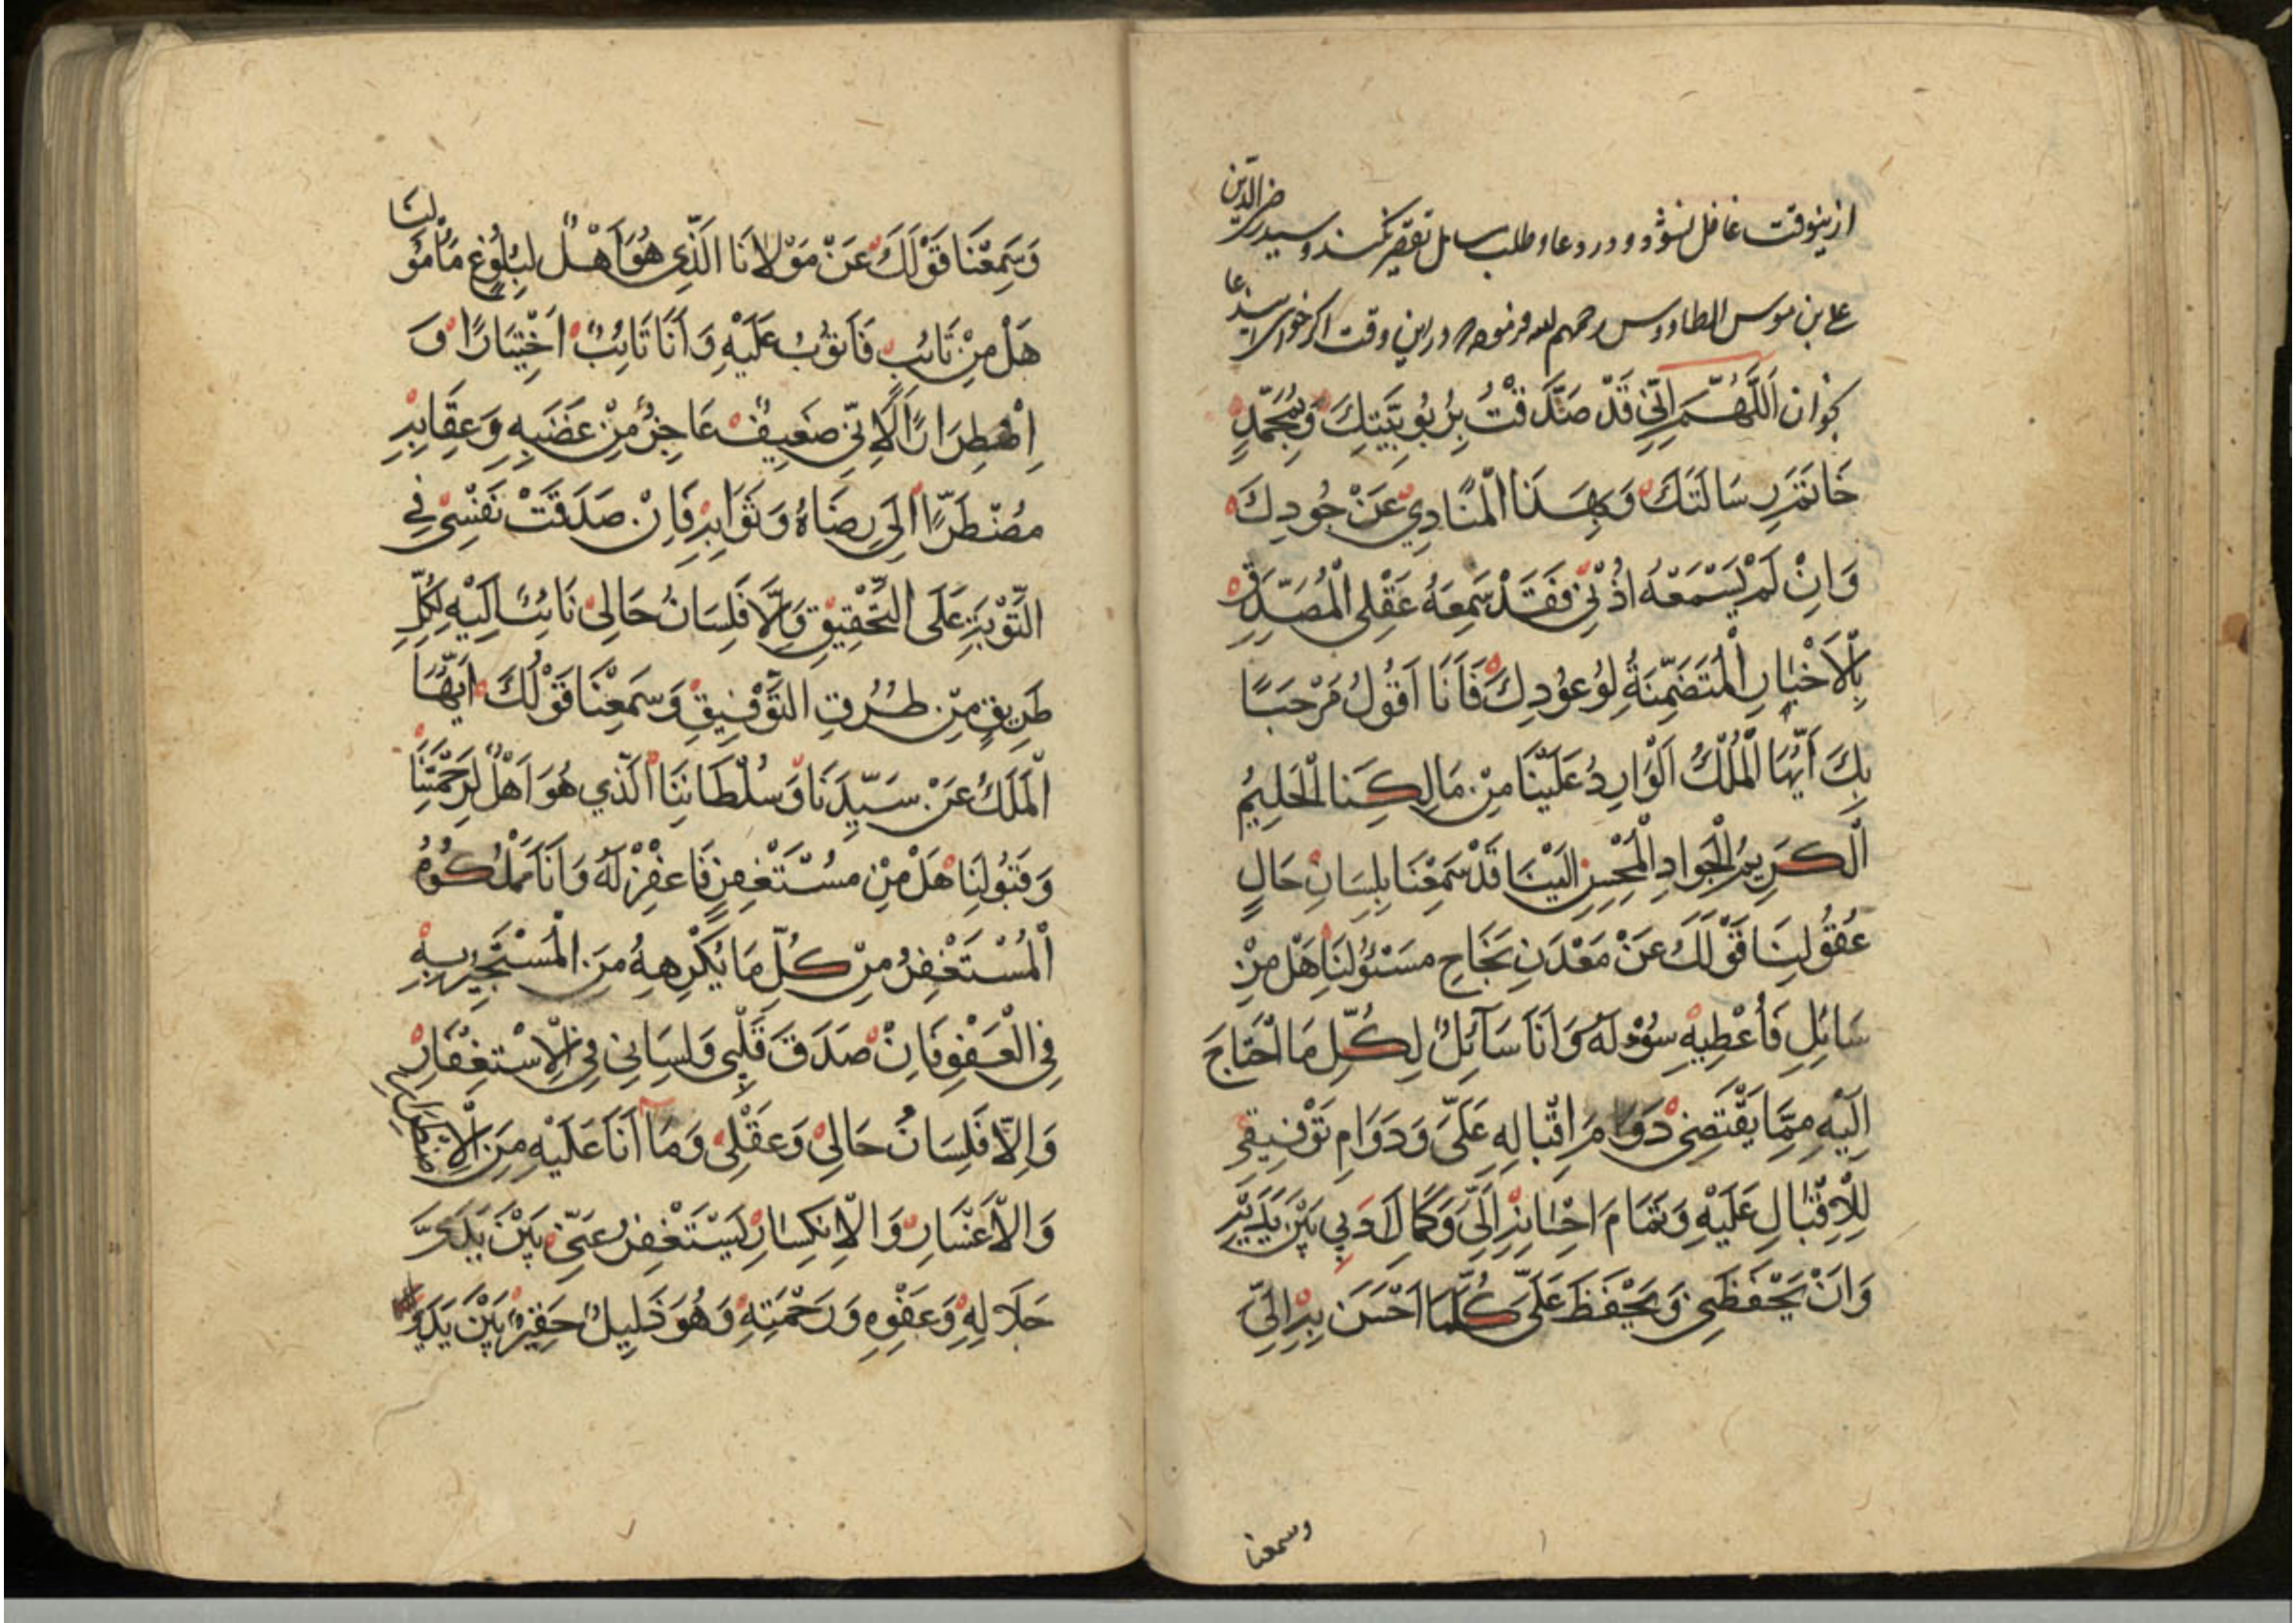 ازینوقت غافل نشود و در دعا و طلب مسایل تقصیر نکند و سید رضی الدین
علی بن موسی الطاووس رحمهم الله فرموده در این وقت اکر خواسته باشد دعا
بخوان اَللّٰهُمَّ اِنّي قَدْ صَدَّقْتُ بِرُبُوبِيَّتِكَ وَبِمُحَمَّدٍ
خَاتَمِ رِسَالَتِكَ وَبِهٰذَا الْمُنَادِي عَنْ جُودِكَ
وَاِنْ لَمْ يَسْمَعْهُ اُذُنِي فَقَدْ سَمِعَهُ عَقْلِي الْمُصَدِّقِ
بِالْاَخْبَارِ الْمُتَضَمِّنَةُ لِوُعُودِكَ فَاَنَا اَقُولُ مَرْحَبًا
بِكَ اَيُّهَا الْمَلَكُ الْوَارِدُ عَلَيْنَا مِنْ مَالِكِنَا الْحَلِيمُ
الْكَرِيمُ الْجَوَادِ الْمُحْسِنِ اِلَيْنَا قَدْ سَمِعْنَا بِلِسَانِ حَالِ
عُقُولِنَا قَوْلَكَ عَنْ مَعْدَنِ نَجَاحِ مَسْئُولِنَا هَلْ مِنْ
سَائِلٍ فَأُعْطِيهِ سُؤْلَهُ وَاَنَا سَآئِلٌ لِكُلِّ مَا اَحْتَاجَ
اِلَيْهِ مِمَّا يَقْتَضِي دَوَامَ اِقْبَالِهِ عَلَيَّ وَدَوَامِ تَوْفِيقِي
لِلْاِقْبَالِ عَلَيْهِ وَتَمَامَ اِحْسَانِهِ اِلَيَّ وَكَمَالَ اَدَبِي بَيْنَ يَدَيْهِ
وَاَنْ يَحْفَظَنِي وَيَحْفَظَ عَلَيَّ كُلَّمَا اَحْسَنَ بِهِ اِلَيَّ
وسمعنا
وَسَمِعْنَا قَوْلَكَ عَنْ مَوْلَانَا الَّذِي هُوَ اَهْلٌ لِبُلُوغِ مَأْمُولِنَا
هَلْ مِنْ تَائِبٍ فَاَتُوبُ عَلَيْهِ وَاَنَا تَائِبٌ اَخْتِيَارًا وَ
اِضْطِرَارًا لِاَنِّي ضَعِيفٌ عَاجِزٌ مِنْ غَضَبِهِ وَعِقَابِهِ
مُضْطَرًّا اِلَى رِضَاهُ وَثَوَابِهِ فَاِنْ صَدَقَتْ نَفْسِي فِي
التَّوْبَةِ عَلَى التَّحْقِيقِ وَاِلَّا فَلِسَانُ حَالِي تَائِبٌ اِلَيْهِ بِكُلِّ
طَرِيقٍ مِنْ طُرُقِ التَّوْفِيقِ وَسَمِعْنَا قَوْلَكَ اَيُّهَا
الْمَلَكُ عَنْ سَيِّدِنَا وَسُلْطَانِنَا الَّذِي هُوَ اَهْلٌ لِرَحْمَتِنَا
وَقَبُولِنَا هَلْ مِنْ مُسْتَغْفِرٍ فَاَغْفِرْ لَهُ وَاَنَا مَمْلُوكُهُ
الْمُسْتَغْفِرُ مِنْ كُلِّ مَا يَكْرَهُهُ مِنَ الْمُسْتَجِيرِ بِهِ
فِي الْعَفْوِ فَاِنْ صَدَقَ قَلْبِي وَلِسَانِي فِي الْاِسْتِغْفَارِ
وَاِلَّا فَلِسَانُ حَالِي وَعَقْلِي وَمَا اَنَا عَلَيْهِ مِنَ الْاِضْطِرَارِ
وَالْاَعْسَارِ وَالْاِنْكِسَارِ يَسْتَغْفِرُ عَنِّي بَيْنَ يَدَيْ
جَلَالِهِ وَعَفْوِهِ وَرَحْمَتِهِ وَهُوَ ذَلِيلٌ حَقِيرٌ بَيْنَ يَدَيْهِ